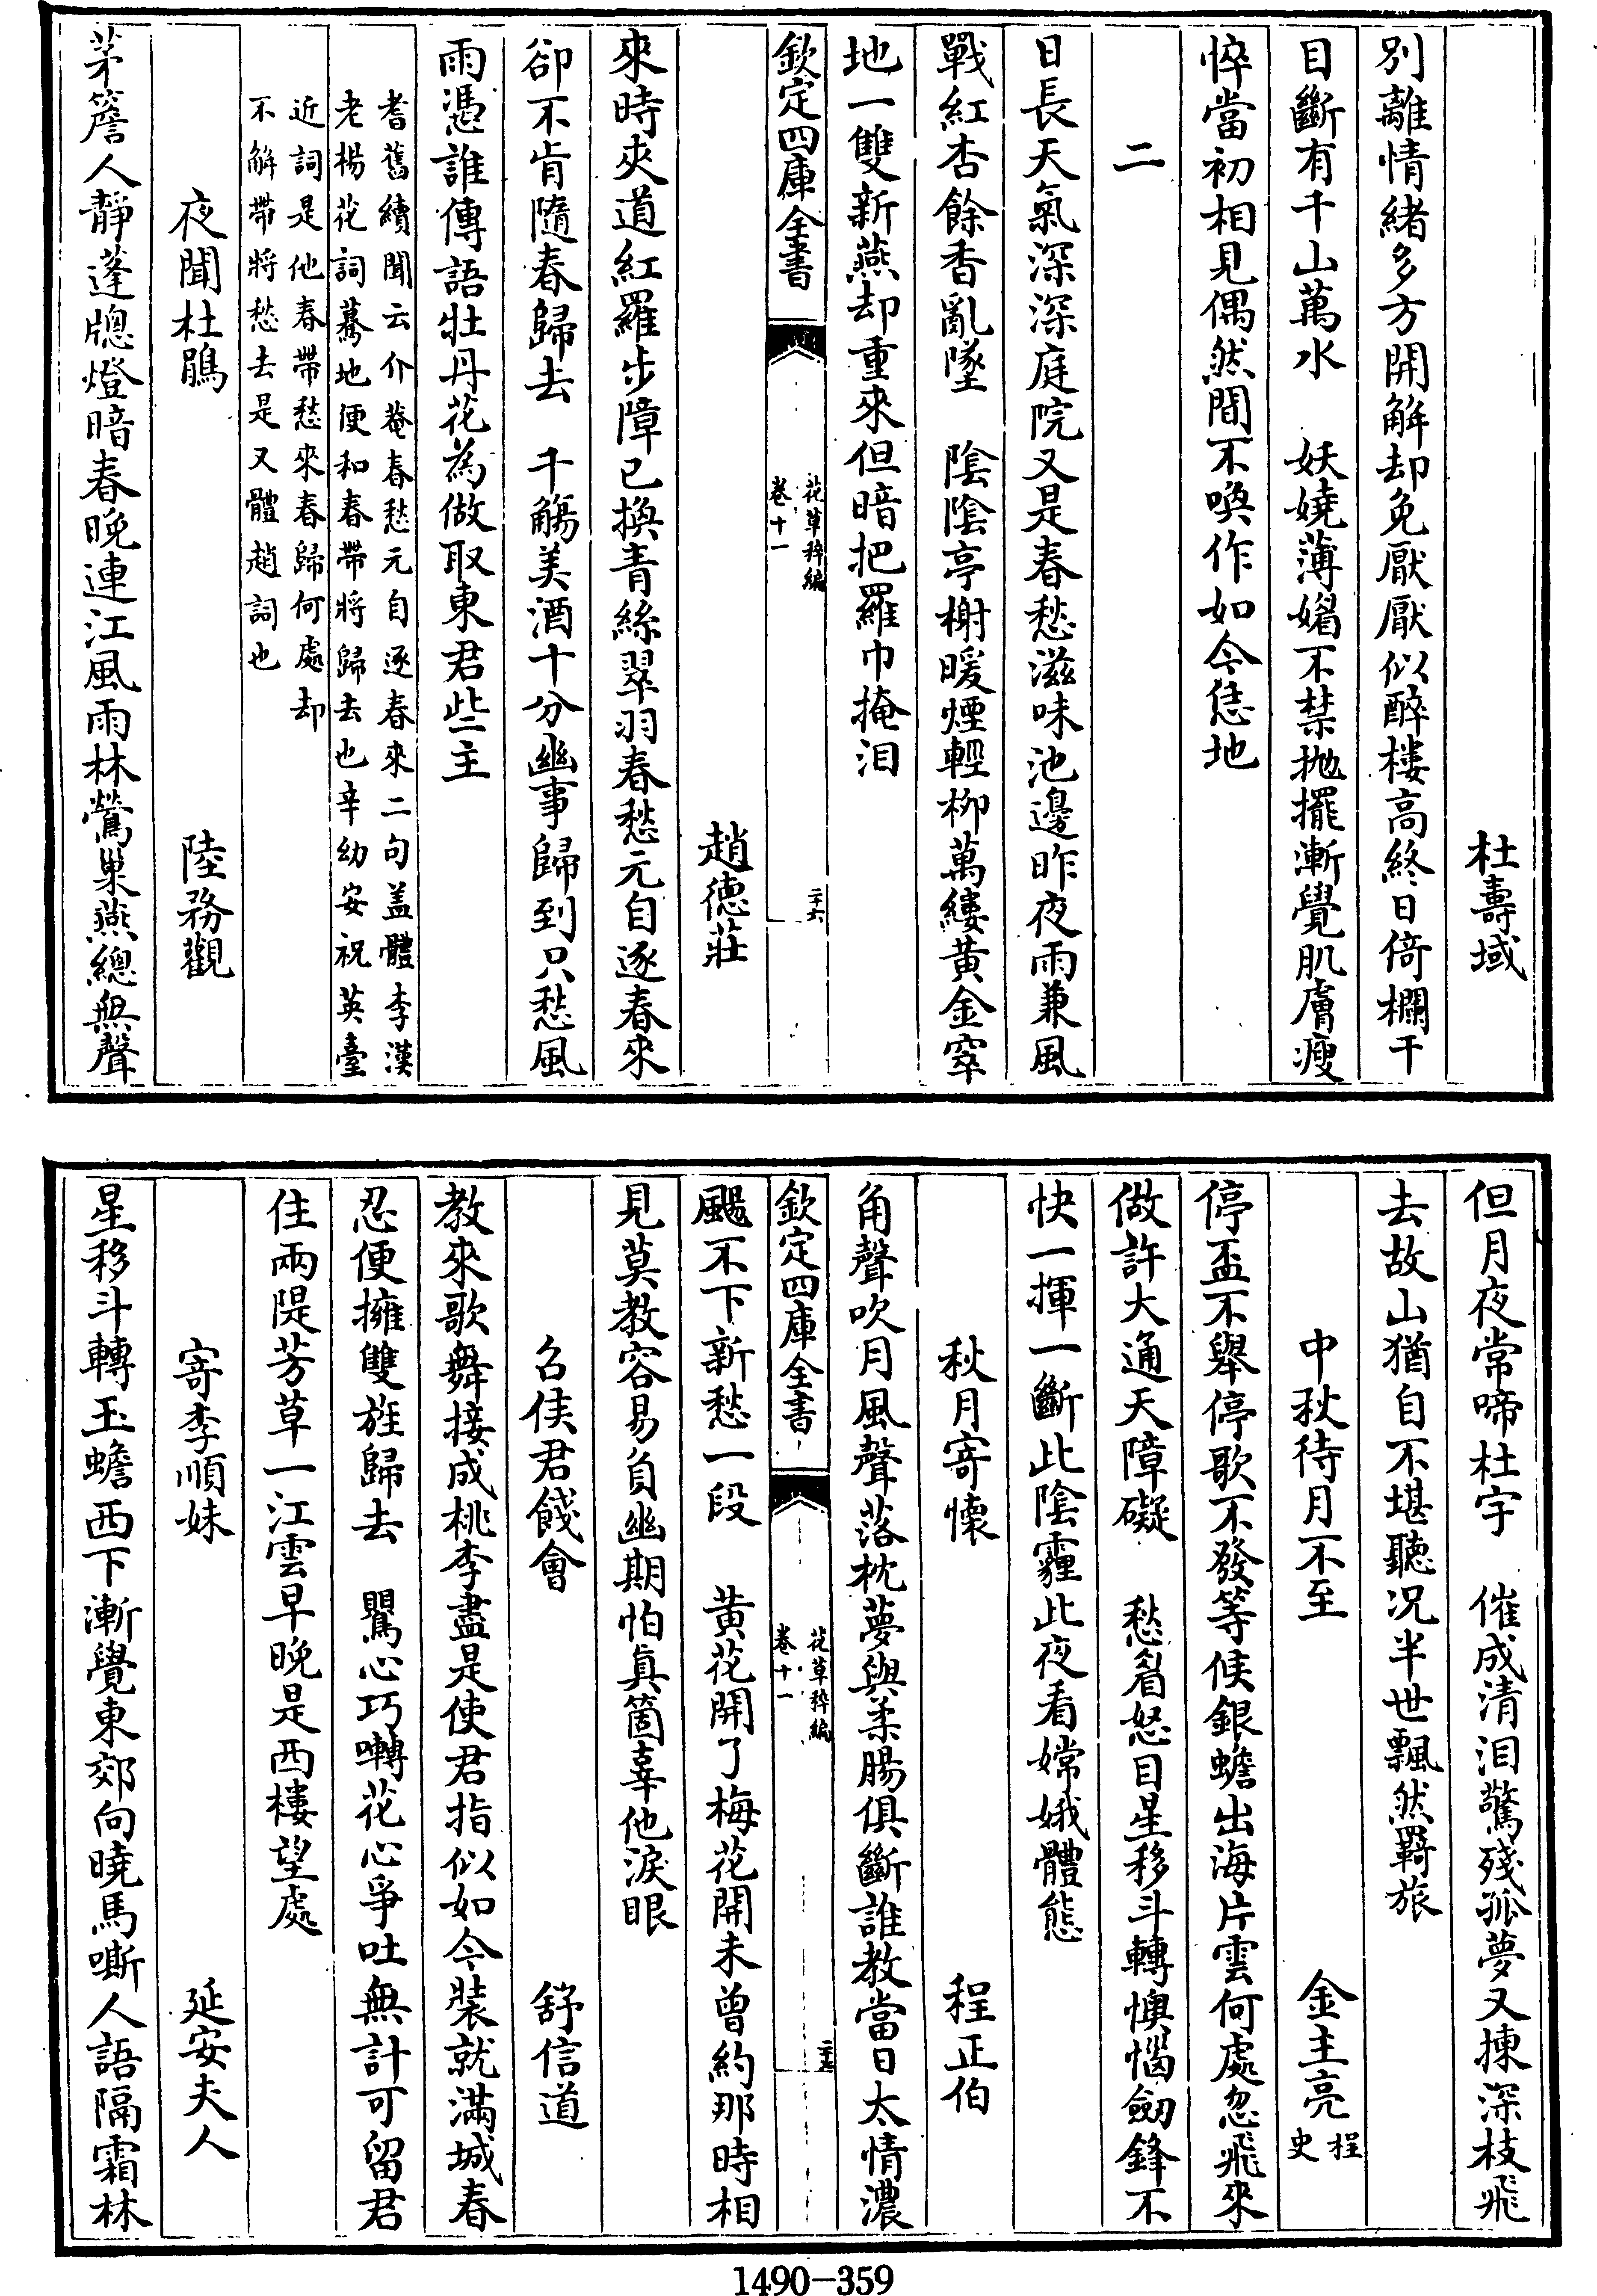 杜壽域
別離情緒多方開解却免厭厭似醉樓高終日倚欄干
目斷有千山萬水　妖嬈薄媚不禁拋擺漸覺肌膚瘦
悴當初相見偶然間不喚作如今恁地
二
日長天氣深深庭院又是春愁滋味池邊昨夜雨兼風
戰紅杏餘香亂墜　陰陰亭榭暖煙輕柳萬縷黃金窣
地一雙新燕却重來但暗把羅巾掩泪
欽定四庫全書
花草稡編
卷十一
二十六
趙德莊
來時夾道紅羅步障已換青絲翠羽春愁元自逐春來
卻不肯隨春歸去　千觴美酒十分幽事歸到只愁風
雨憑誰傳語牡丹花為做取東君些主
耆舊續聞云介菴春愁元自逐春來二句盖體李漢
老楊花詞驀地便和春帶將歸去也辛幼安祝英臺
近詞是他春帶愁來春歸何處却
不解帶將愁去是又體趙詞也
夜聞杜鵑　陸務觀
茅簷人靜蓬牕燈暗春晚連江風雨林鶯巢燕總無聲
但月夜常啼杜宇　催成清泪驚殘孤夢又揀深枝飛
去故山猶自不堪聽况半世飄然羇旅
中秋待月不至　金主亮程史
停盃不舉停歌不發等候銀蟾出海片雲何處忽飛來
做許大通天障礙　愁眉怒目星移斗轉懊惱劒鋒不
快一揮一斷此陰霾此夜看嫦娥體態
秋月寄懷　程正伯
角聲吹月風聲落枕夢與柔腸俱斷誰教當日太情濃
欽定四庫全書
花草稡編
卷十一
二十七
颺不下新愁一段　黃花開了梅花開未曾約那時相
見莫教容易負幽期怕真箇辜他淚眼
呂使君餞會　舒信道
教來歌舞接成桃李盡是使君指似如今裝就滿城春
忍便擁雙旌歸去　鸎心巧囀花心爭吐無計可留君
住兩隄芳草一江雲早晚是西樓望處
寄李順妹　延安夫人
星移斗轉玉蟾西下漸覺東郊向曉馬嘶人語隔霜林
1490-359